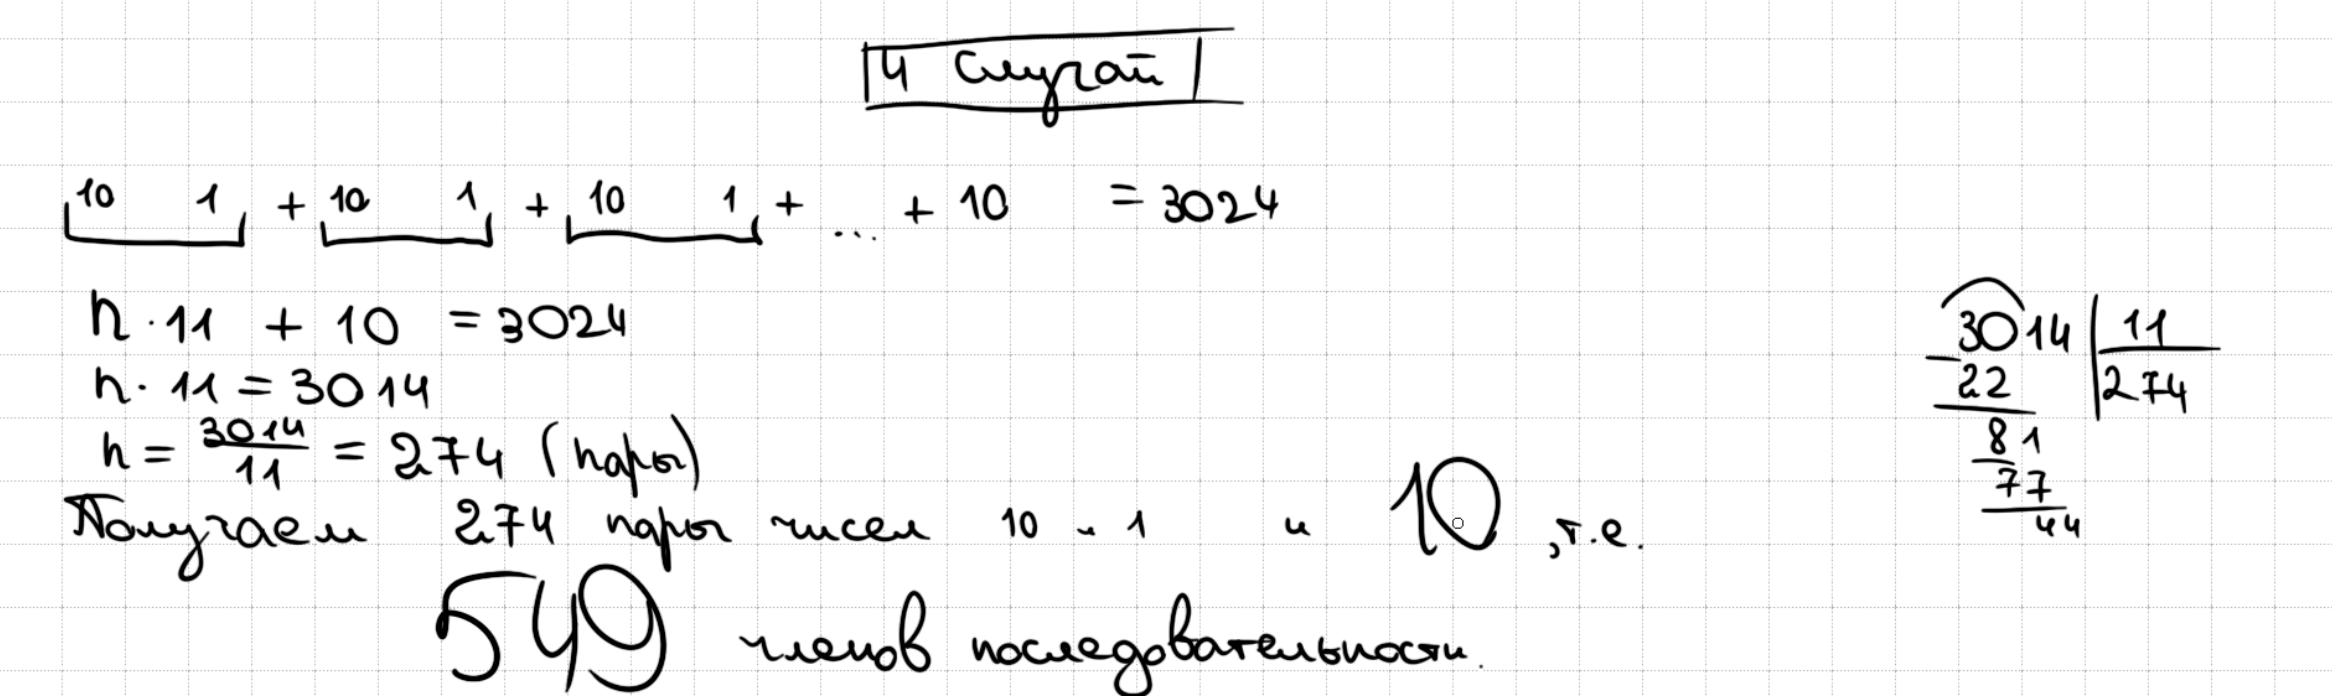 4 Случай
10 1 + 10 1 + 10 1 + ... + 10 = 3024
n · 11 + 10 = 3024
n · 11 = 3014
n = 3014/11 = 274 (пары)
Получаем 274 пары чисел 10 и 1 и 10, т.е.
549 членов последовательности.
3014 | 11
- 22 | 274
81
- 77
44